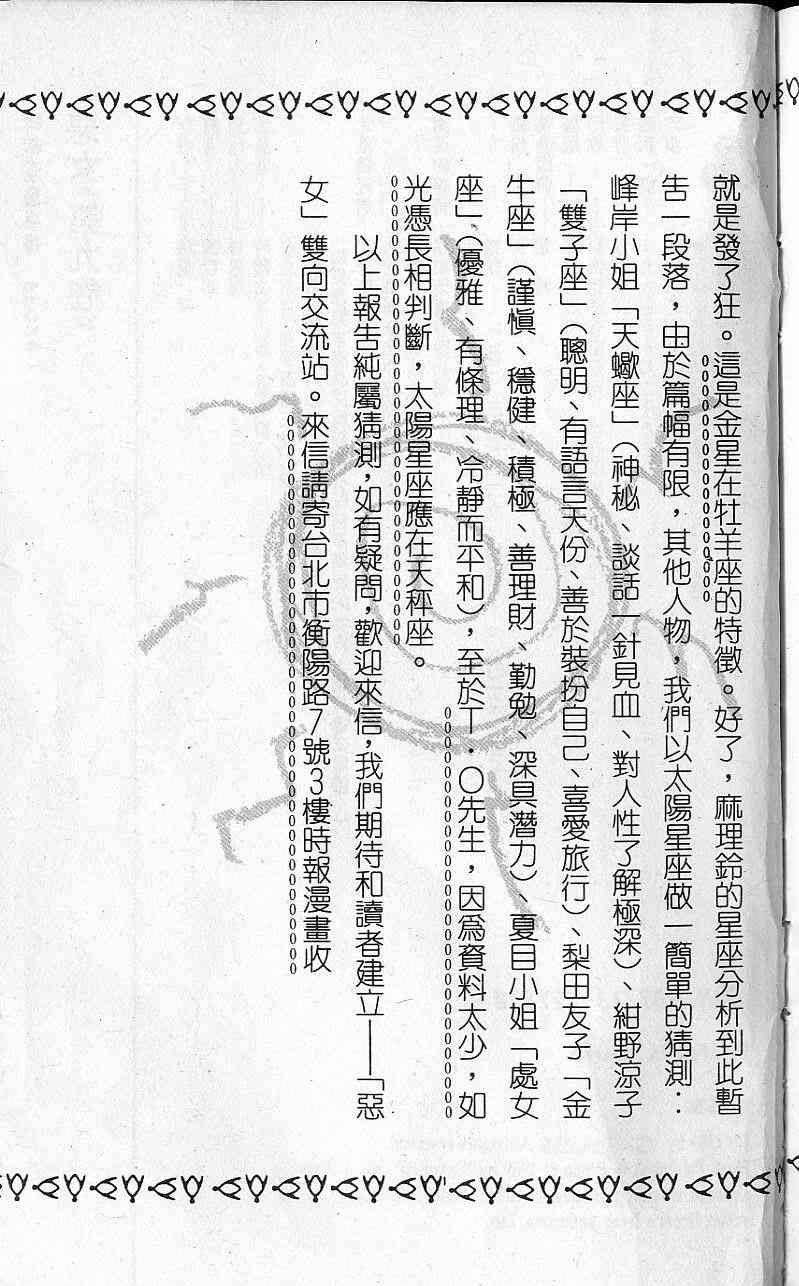 就是發了狂。這是金星在牡羊座的特徵。好了，麻理鈴的星座分析到此暫
告一段落，由於篇幅有限，其他人物，我們以太陽星座做一簡單的猜測：
峰岸小姐「天蠍座」（神秘、談話一針見血、對人性了解極深）、紺野涼子
「雙子座」（聰明、有語言天份、善於裝扮自己、喜愛旅行）、梨田友子「金
牛座」（謹慎、穩健、積極、善理財、勤勉、深具潛力）、夏目小姐「處女
座」（優雅、有條理、冷靜而平和），至於T．O先生，因為資料太少，如
光憑長相判斷，太陽星座應在天秤座。
以上報告純屬猜測，如有疑問，歡迎來信，我們期待和讀者建立——「惡
女」雙向交流站。來信請寄台北市衡陽路7號3樓時報漫畫收